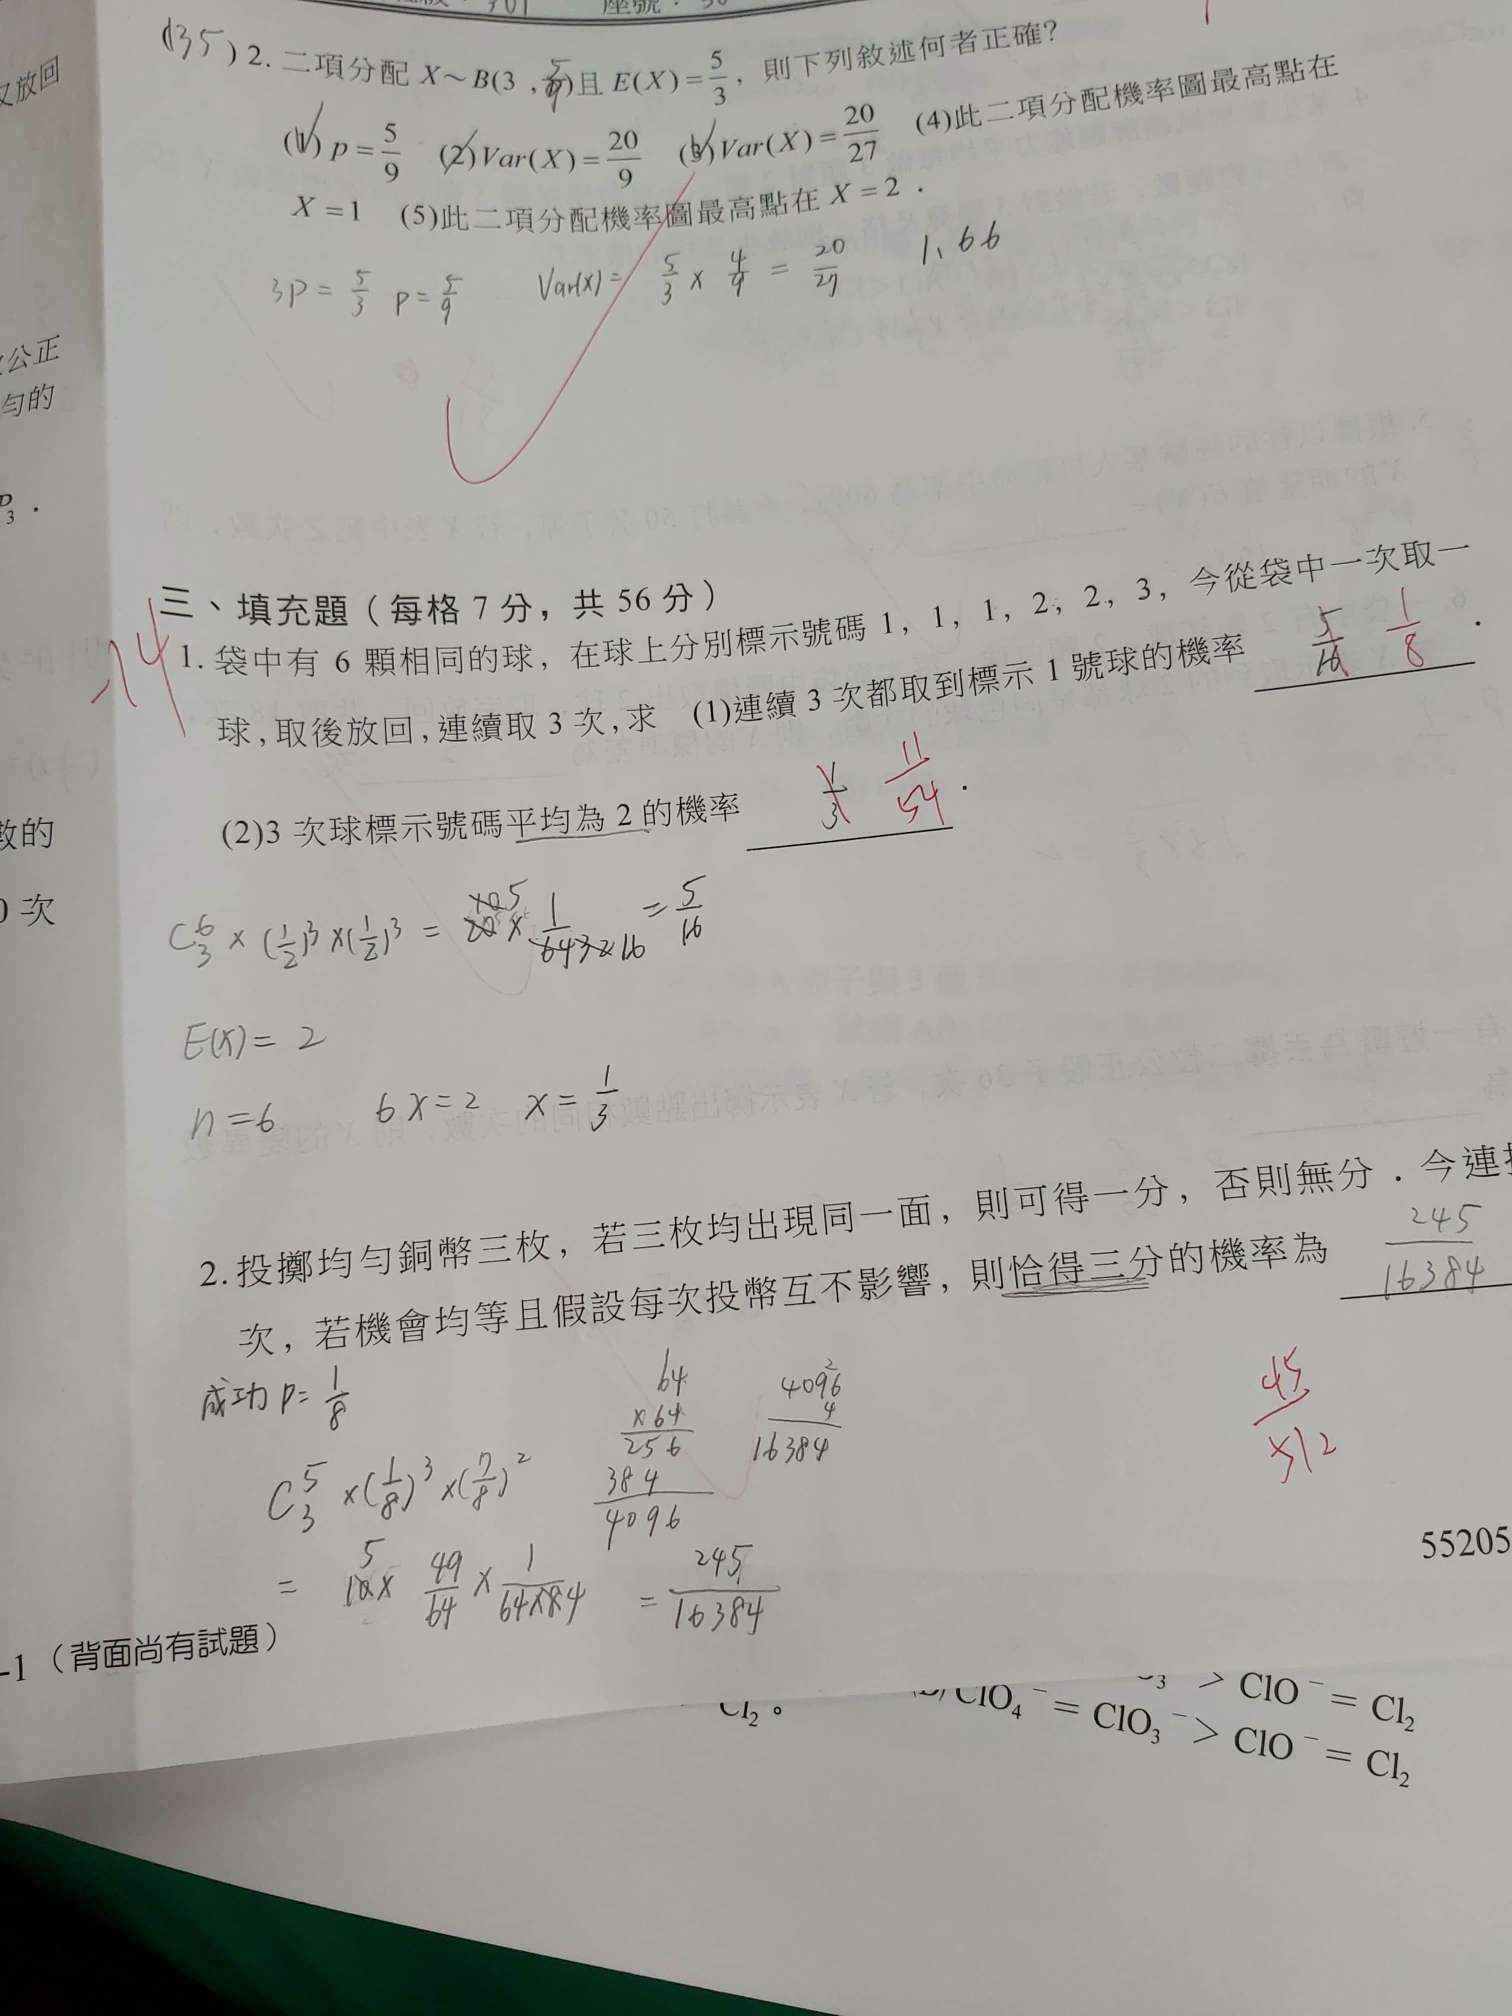 (135)
2. 二項分配 X～B(3 , 5/9)且 E(X)=5/3，則下列敘述何者正確？
(1) p=5/9 (2)Var(X)=20/9 (3)Var(X)=20/27 (4)此二項分配機率圖最高點在
X=1 (5)此二項分配機率圖最高點在 X=2．
3P = 5/3 P = 5/9 Var(x) = 5/3 × 4/9 = 20/27 1.66
三、填充題（每格 7 分，共 56 分）
14
1. 袋中有 6 顆相同的球，在球上分別標示號碼 1，1，1，2，2，3，今從袋中一次取一
球，取後放回，連續取 3 次，求 (1)連續 3 次都取到標示 1 號球的機率 5/16 1/8 ．
(2)3 次球標示號碼平均為 2 的機率 1/3 11/54 ．
C⁶₃ × (1/2)³ × (1/2)³ = 20 10 5 × 1/64 32 16 = 5/16
E(x) = 2
n = 6 6x = 2 x = 1/3
2. 投擲均勻銅幣三枚，若三枚均出現同一面，則可得一分，否則無分．今連
次，若機會均等且假設每次投幣互不影響，則恰得三分的機率為 245/16384
成功 P = 1/8
64
×64
256
384
4096
4096
4
16384
45/512
C⁵₃ × (1/8)³ × (7/8)²
= 10 5 × 49/64 × 1/64×84 = 245/16384
55205
-1（背面尚有試題）
又放回
公正
勻的
3．
數的
0 次
座號：
Cl₂。
₃ > ClO⁻ = Cl₂
ClO₄⁻ = ClO₃⁻ > ClO⁻ = Cl₂